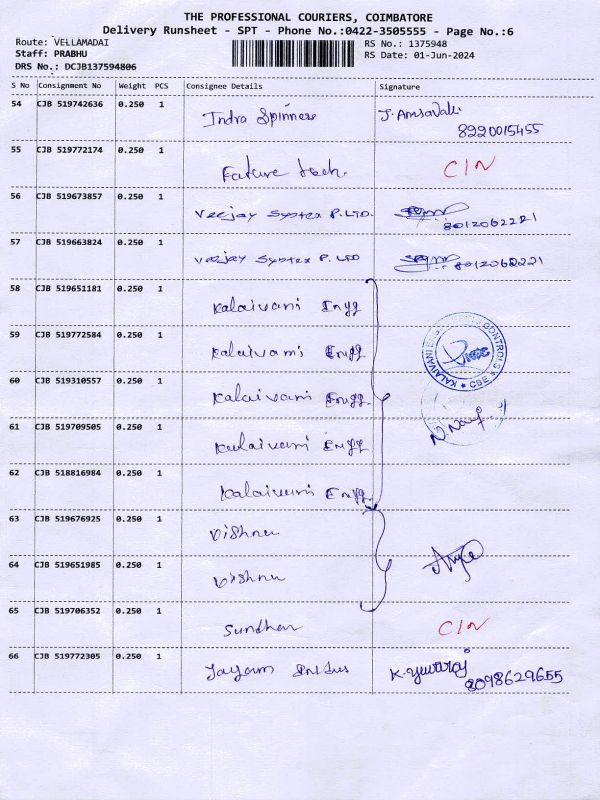 THE PROFESSIONAL COURIERS, COIMBATORE
Delivery Runsheet - SPT - Phone No.:0422-3505555 - Page No.:6
Route: VELLAMADAI
RS No.: 1375948
Staff: PRABHU
RS Date: 01-Jun-2024
DRS No.: DCJB137594806
S No Consignment No Weight PCS Consignee Details Signature
54 CJB 519742636 0.250 1 Indra Spinners J. Amsavalli
8220015455
55 CJB 519772174 0.250 1 Future tech. C/N
56 CJB 519673857 0.250 1 Veejay Syntex P.LTD.
8012062221
57 CJB 519663824 0.250 1 Veejay Syntex P.LTD 8012062221
58 CJB 519651181 0.250 1 Kalaivani Engg
59 CJB 519772584 0.250 1 Kalaivani Engg
KALAIVANI CONTROLS * CBE *
60 CJB 519310557 0.250 1 Kalaivani Engg.
61 CJB 519709505 0.250 1 Kalaivani Engg
62 CJB 518816984 0.250 1 Kalaivani Engg.
63 CJB 519676925 0.250 1 Vishnu
64 CJB 519651985 0.250 1 Vishnu
65 CJB 519706352 0.250 1 Sundhar C/N
66 CJB 519772305 0.250 1 Jayam K. Yuvaraj
8098629655